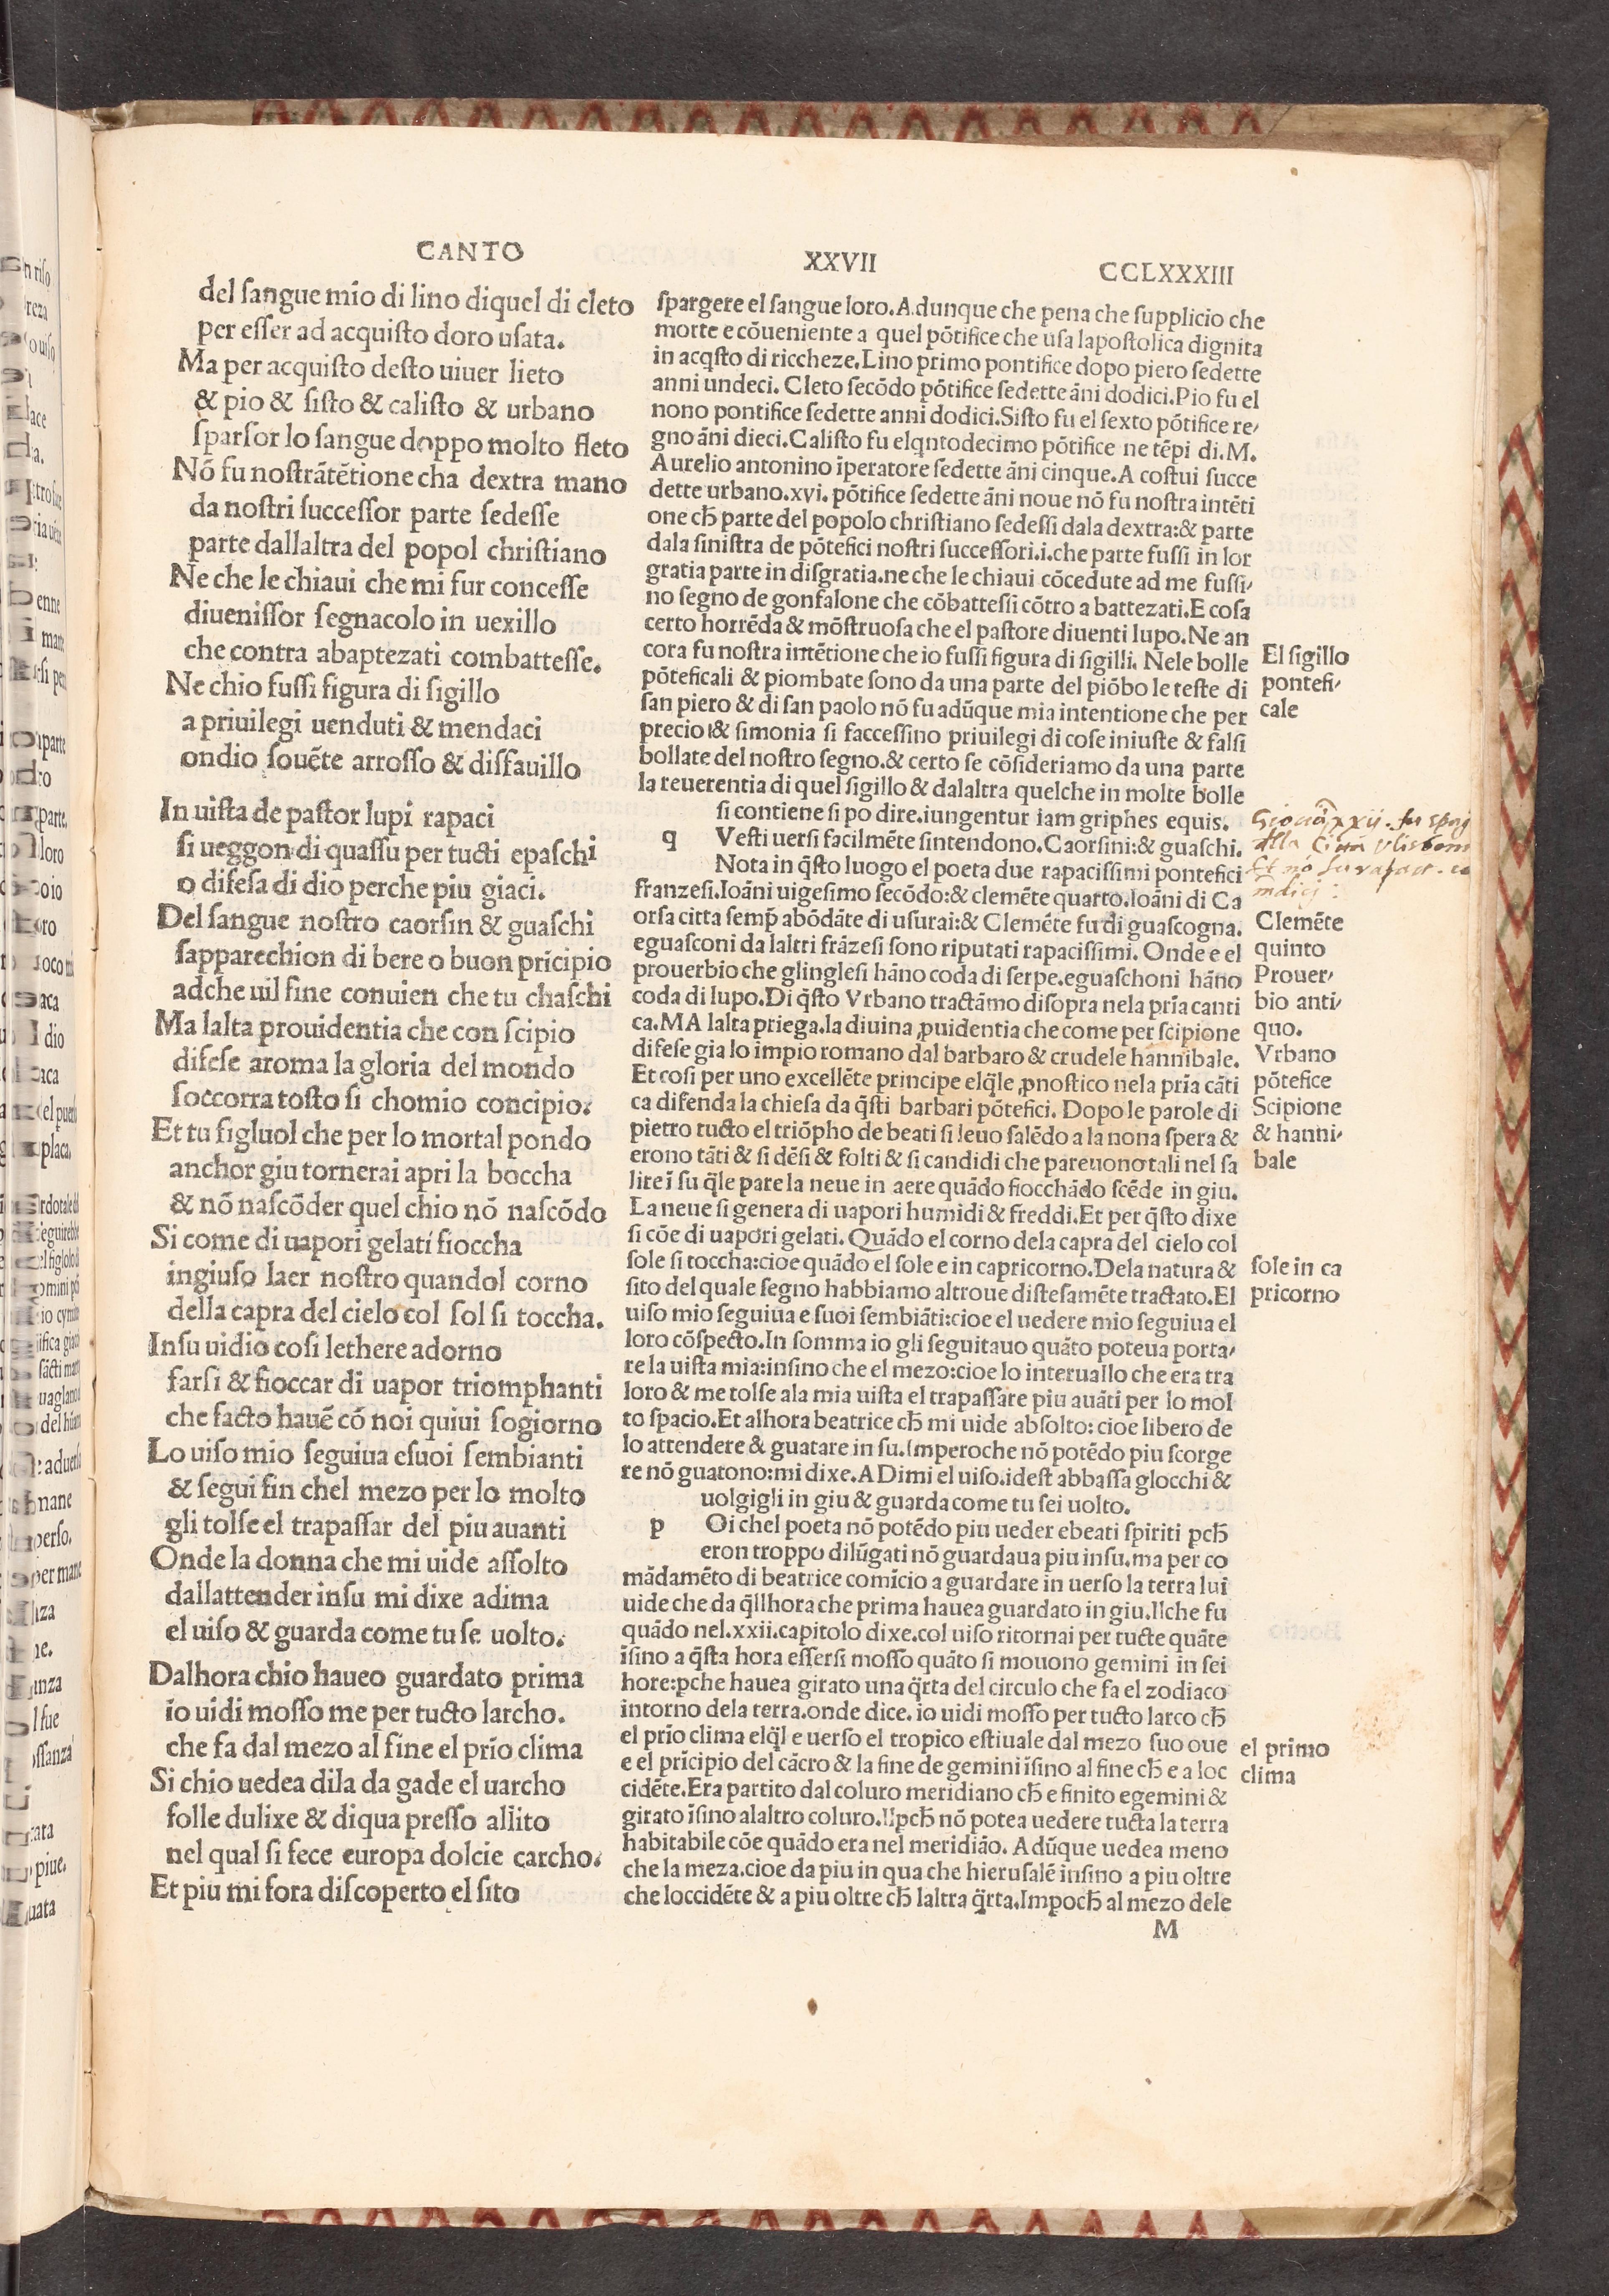 CANTO XXVII CCLXXXIII
del ſangue mio di lino diquel di cleto
per eſſer ad acquiſto doro uſata.
Ma per acquiſto deſto uiuer lieto
& pio & ſiſto & caliſto & urbano
ſparſor lo ſangue doppo molto fleto
Nō fu noſtrātētione cha dextra mano
da noſtri ſucceſſor parte ſedeſſe
parte dallaltra del popol chriſtiano
Ne che le chiaui che mi fur conceſſe
diueniſſor ſegnacolo in uexillo
che contra abaptezati combatteſſe.
Ne chio fuſſi figura di ſigillo
a priuilegi uenduti & mendaci
ondio ſouēte arroſſo & diſfauillo
In uiſta de paſtor lupi rapaci
ſi ueggon di quaſſu per tucti epaſchi
o difeſa di dio perche piu giaci.
Del ſangue noſtro caorſin & guaſchi
ſapparechion di bere o buon prīcipio
adche uil fine conuien che tu chaſchi
Ma lalta prouidentia che con ſcipio
difeſe aroma la gloria del mondo
ſoccorra toſto ſi chomio concipio.
Et tu figluol che per lo mortal pondo
anchor giu tornerai apri la boccha
& nō naſcōder quel chio nō naſcōdo
Si come di uapori gelati fioccha
ingiuſo laer noſtro quandol corno
della capra del cielo col ſol ſi toccha.
Inſu uidio coſi lethere adorno
farſi & fioccar di uapor triomphanti
che facto hauē cō noi quiui ſogiorno
Lo uiſo mio ſeguiua eſuoi ſembianti
& ſegui fin chel mezo per lo molto
gli tolſe el trapaſſar del piu auanti
Onde la donna che mi uide aſſolto
dallattender inſu mi dixe adima
el uiſo & guarda come tu ſe uolto.
Dalhora chio haueo guardato prima
io uidi moſſo me per tucto larcho.
che fa dal mezo al fine el prīo clima
Si chio uedea dila da gade el uarcho
folle dulixe & diqua preſſo allito
nel qual ſi fece europa dolcie carcho.
Et piu mi fora diſcoperto el ſito
ſpargere el ſangue loro. Adunque che pena che ſupplicio che
morte e cōueniente a quel pōtifice che uſa lapoſtolica dignita
in acq̄ſto di riccheze. Lino primo pontifice dopo piero ſedette
anni undeci. Cleto ſecōdo pōtifice ſedette āni dodici. Pio fu el
nono pontifice ſedette anni dodici. Siſto fu el ſexto pōtifice re/
gno āni dieci. Caliſto fu elqntodecimo pōtifice ne tēpi di. M.
Aurelio antonino īperatore ſedette āni cinque. A coſtui ſucce
dette urbano. xvi. pōtifice ſedette āni noue nō fu noſtra intēti
one cħ parte del popolo chriſtiano ſedeſſi dala dextra: & parte
dala ſiniſtra de pōtefici noſtri ſucceſſori. i. che parte fuſſi in lor
gratia parte in diſgratia. ne che le chiaui cōcedute ad me fuſſi/
no ſegno de gonfalone che cōbatteſſi cōtro a battezati. E coſa
certo horrēda & mōſtruoſa che el paſtore diuenti lupo. Ne an
cora fu noſtra intētione che io fuſſi figura di ſigilli. Nele bolle
pōteficali & piombate ſono da una parte del piōbo le teſte di
ſan piero & di ſan paolo nō fu adūque mia intentione che per
precio & ſimonia ſi facceſſino priuilegi di coſe iniuſte & falſi
bollate del noſtro ſegno. & certo ſe cōſideriamo da una parte
la reuerentia di quel ſigillo & dalaltra quelche in molte bolle
ſi contiene ſi po dire. iungentur iam griphes equis.
q Veſti uerſi facilmēte ſintendono. Caorſini: & guaſchi.
Nota in q̄ſto luogo el poeta due rapaciſſimi pontefici
franzeſi. Ioāni uigeſimo ſecōdo: & clemēte quarto. Ioāni di Ca
orſa citta ſemp̄ abōdāte di uſurai: & Clemēte fu di guaſcogna.
eguaſconi da laltri frāzeſi ſono riputati rapaciſſimi. Onde e el
prouerbio che glingleſi hāno coda di ſerpe. eguaſchoni hāno
coda di lupo. Di q̄ſto Vrbano tractāmo diſopra nela prīa canti
ca. MA lalta priega. la diuina ꝓuidentia che come per ſcipione
difeſe gia lo impio romano dal barbaro & crudele hannibale.
Et coſi per uno excellēte principe elq̄le ꝓnoſtico nela prīa cāti
ca difenda la chieſa da q̄ſti barbari pōtefici. Dopo le parole di
pietro tucto el triōpho de beati ſi leuo ſalēdo a la nona ſpera &
erono tāti & ſi dēſi & folti & ſi candidi che pareuono tali nel ſa
lire ī ſu q̄le pare la neue in aere quādo fiocchādo ſcēde in giu.
La neue ſi genera di uapori humidi & freddi. Et per q̄ſto dixe
ſi cōe di uapori gelati. Quādo el corno dela capra del cielo col
ſole ſi toccha: cioe quādo el ſole e in capricorno. Dela natura &
ſito del quale ſegno habbiamo altroue diſteſamēte tractato. El
uiſo mio ſeguiua e ſuoi ſembiāti: cioe el uedere mio ſeguiua el
loro cōſpecto. In ſomma io gli ſeguitauo quāto poteua porta/
re la uiſta mia: inſino che el mezo: cioe lo interuallo che era tra
loro & me tolſe ala mia uiſta el trapaſſare piu auāti per lo mol
to ſpacio. Et alhora beatrice cħ mi uide abſolto: cioe libero de
lo attendere & guatare in ſu. Imperoche nō potēdo piu ſcorge
re nō guatono: mi dixe. ADimi el uiſo. ideſt abbaſſa glocchi &
uolgigli in giu & guarda come tu ſei uolto.
p Oi chel poeta nō potēdo piu ueder ebeati ſpiriti pcħ
eron troppo dilūgati nō guardaua piu inſu. ma per co
mādamēto di beatrice comīcio a guardare in uerſo la terra lui
uide che da q̄llhora che prima hauea guardato in giu. Ilche fu
quādo nel. xxii. capitolo dixe. col uiſo ritornai per tucte quāte
īſino a q̄ſta hora eſſerſi moſſo quāto ſi mouono gemini in ſei
hore: pche hauea girato una q̄rta del circulo che fa el zodiaco
intorno dela terra. onde dice. io uidi moſſo per tucto larco cħ
el prīo clima elq̄l e uerſo el tropico eſtiuale dal mezo ſuo oue
e el prīcipio del cācro & la fine de gemini īſino al fine cħ e a loc
cidēte. Era partito dal coluro meridiano cħ e finito egemini &
girato īſino alaltro coluro. Ilpcħ nō potea uedere tucta la terra
habitabile cōe quādo era nel meridiāo. Adūque uedea meno
che la meza. cioe da piu in qua che hieruſalē inſino a piu oltre
che loccidēte & a piu oltre cħ laltra q̄rta. Impocħ al mezo dele
M
El ſigillo
pontefi/
cale
Clemēte
quinto
Prouer/
bio anti/
quo.
Vrbano
pōtefice
Scipione
& hanni/
bale
ſole in ca
pricorno
el primo
clima